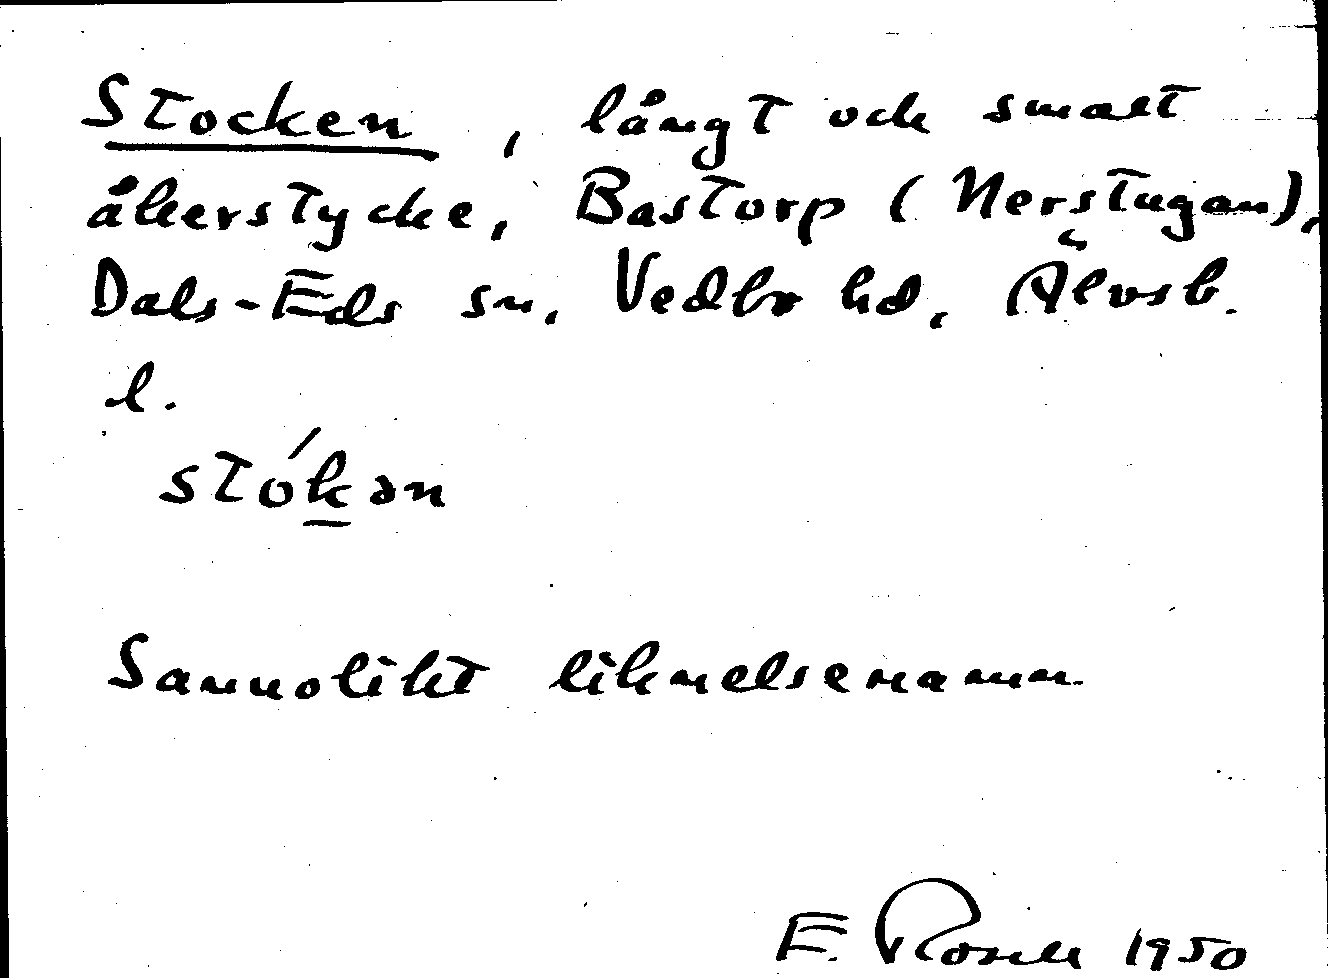 Stocken, långt och smalt
åkerstycke, Bastorp (Nerstugan),
Dals-Eds sn, Vedbo hd, Älvsb.
l.
stókən
Sannolikt liknelsenamn.
E. Rosell 1950